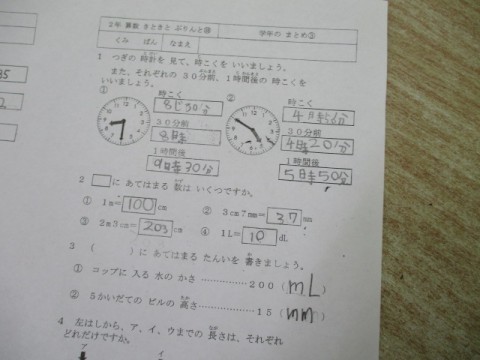 2年 算数 きときと ぷりんと㊽ 学年の まとめ③
くみ ばん なまえ
1 つぎの 時計を 見て、時こくを いいましょう。
また、それぞれの 30分前、1時間後の 時こくを
いいましょう。
① 時こく 8じ30分
30分前 8時
1時間後 9時30分
② 時こく 4時50分
30分前 4時20分
1時間後 5時50分
2 □に あてはまる 数は いくつですか。
① 1m=100cm ② 3cm7mm=37mm
③ 2m3cm=203cm ④ 1L=10dL
3 ( )に あてはまる たんいを 書きましょう。
① コップに 入る 水の かさ ……………200(mL)
② 5かいだての ビルの 高さ………………15(mm)
4 左はしから、ア、イ、ウまでの 長さは、それぞれ
どれだけですか。
ア イ